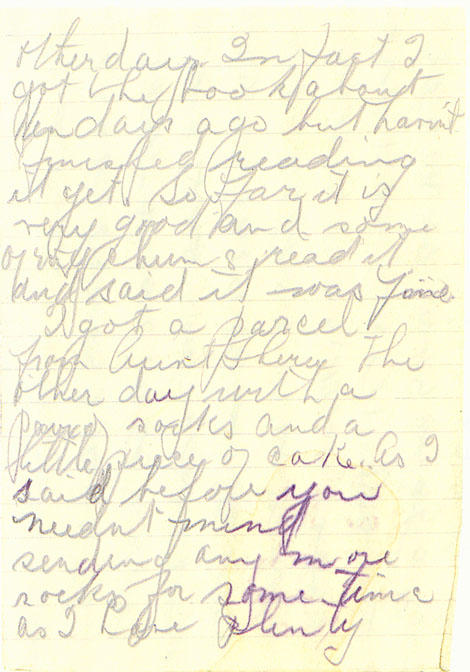 other day. In fact I
got the book about
ten days ago but havn't
finished reading
it yet. So far it is
very good and some
of my chums read it
and said it was fine.
I got a parcel
from Aunt the
other day with a
socks and a
little piece of cake. As I
said before you
needn't mind
sending any more
socks for some time
as I have plenty